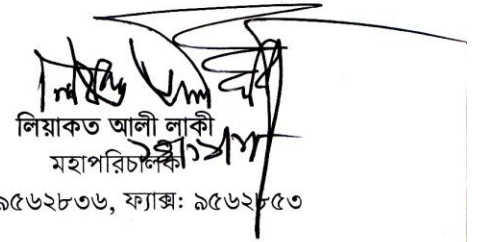 লিয়াকত আলী লাকী
মহাপরিচালক
৯৫৬২৮৩৬, ফ্যাক্স: ৯৫৬২৮৫৩